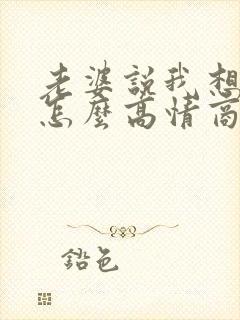 老婆說我想
怎麼高情商
鉛色